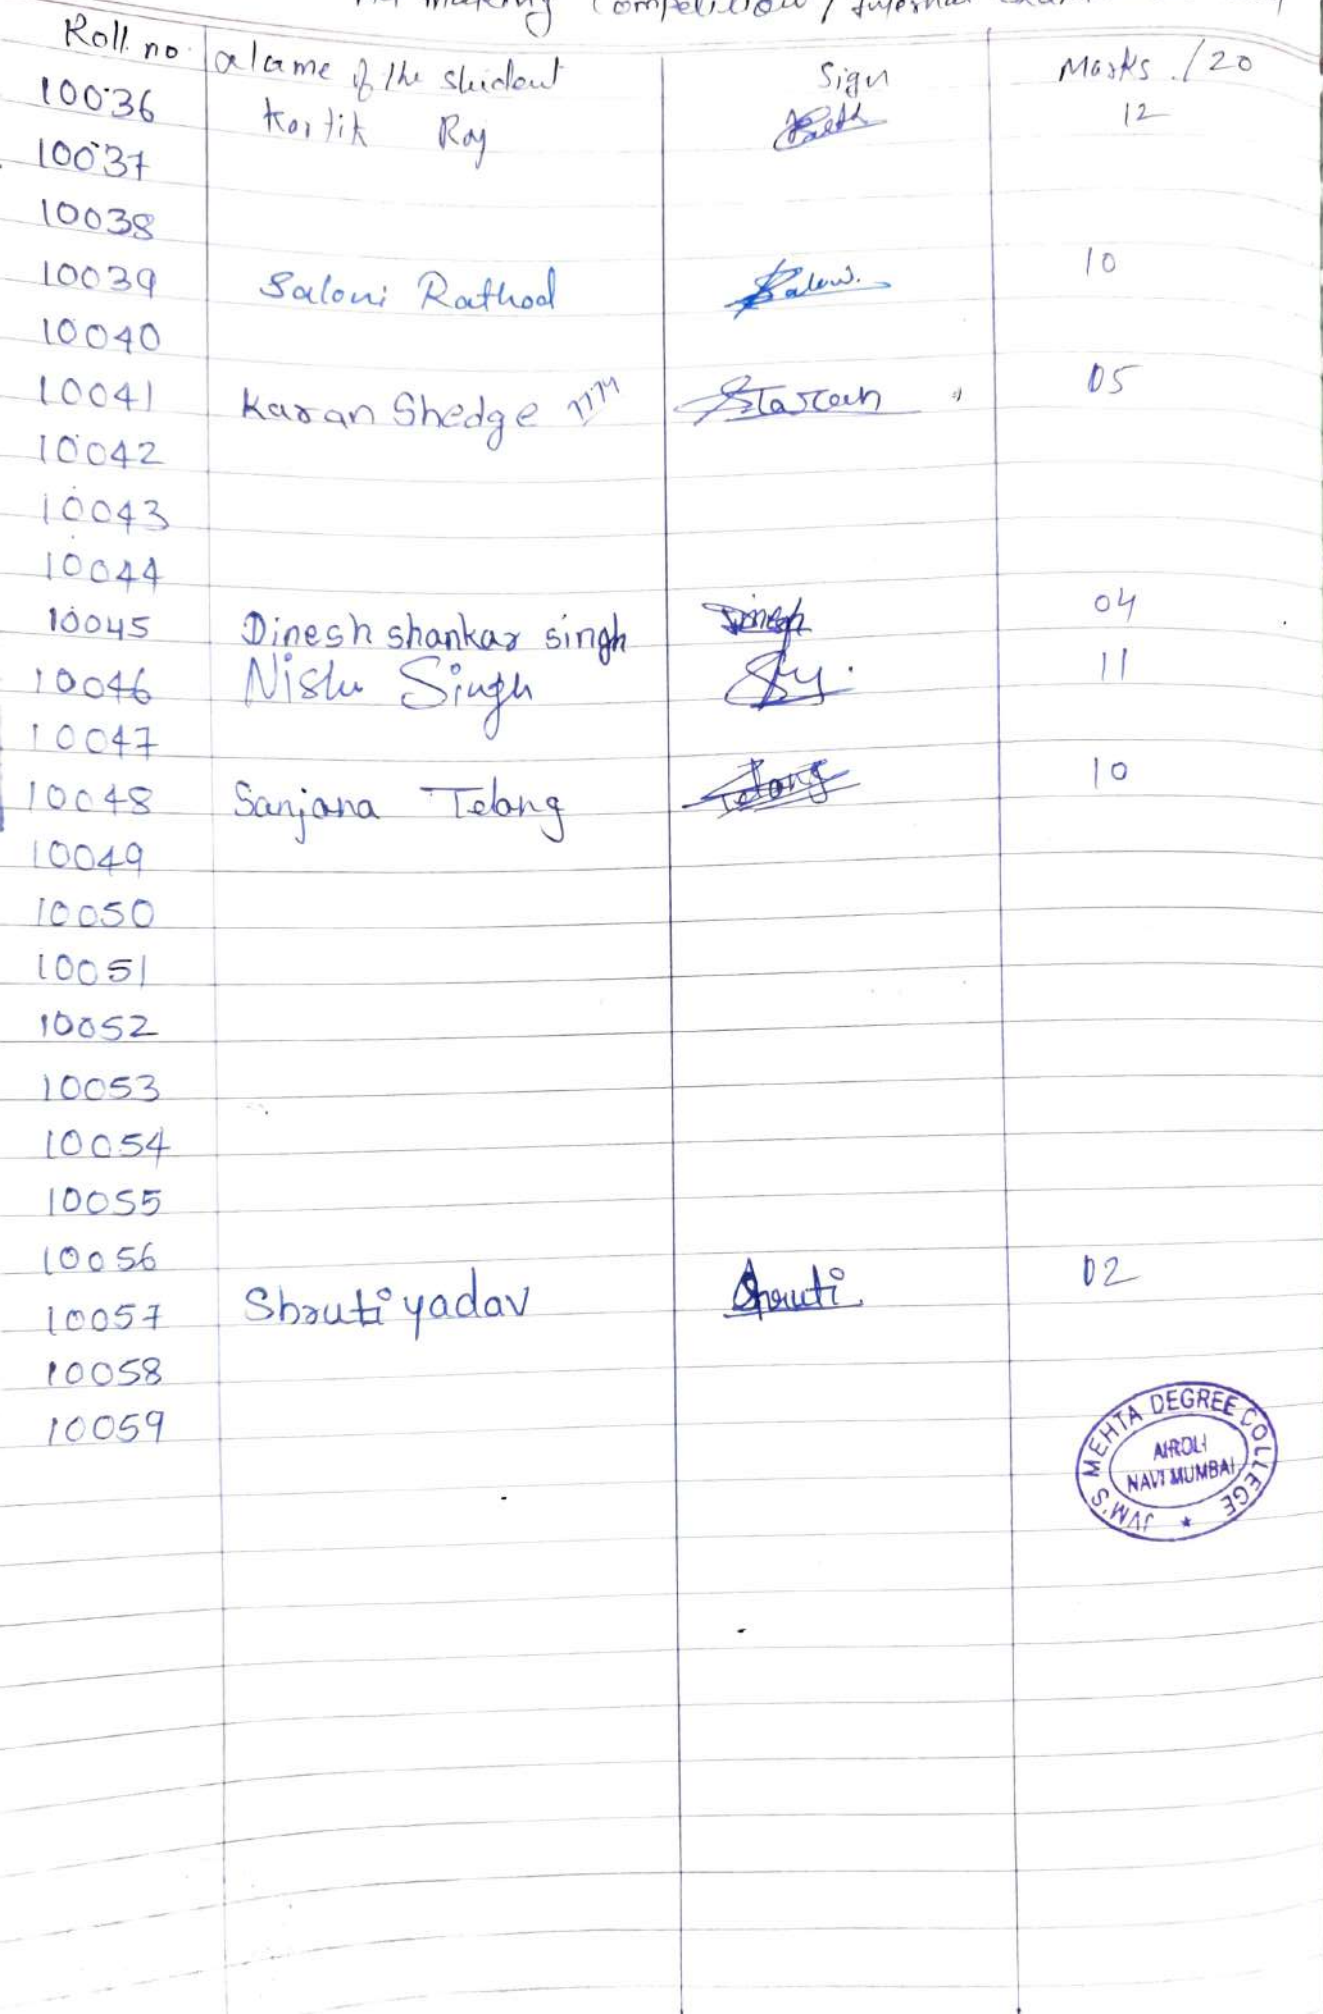 Making Competition / Internal
Roll. no Name of the student Sign Marks ./20
10036 Kartik Roy 12
10037
10038
10039 Saloni Rathod Saloni. 10
10040
10041 Karan Shedge Karan 05
10042
10043
10044
10045 Dinesh shankar singh Dinesh 04
10046 Nishu Singh 11
10047
10048 Sanjana Telang Telang 10
10049
10050
10051
10052
10053
10054
10055
10056
10057 Shruti yadav Shruti 02
10058
10059
JVM'S MEHTA DEGREE COLLEGE
AIROLI
NAVI MUMBAI